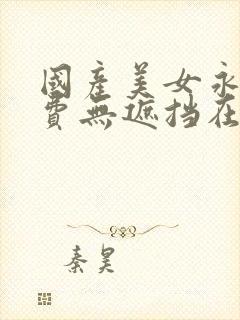 國産美女永
費無遮挡在
秦昊